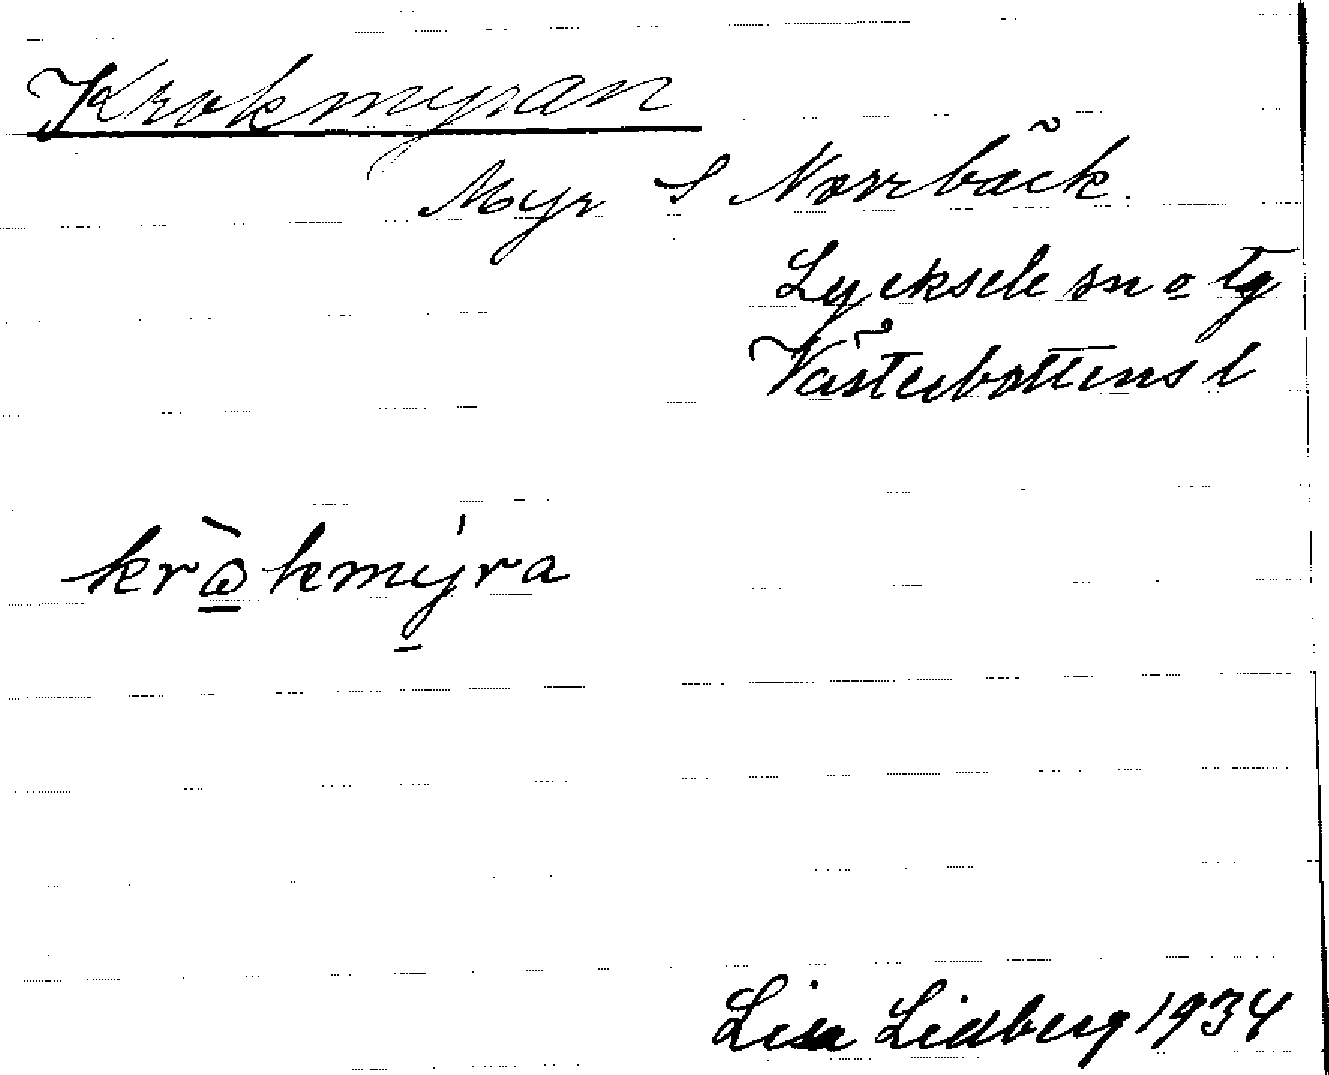 Krokmyran
Myr S Norrbäck.
Lycksele sn o tg
Västerbottens l
krò̱kmý̱ra
Lisa Lidberg 1934